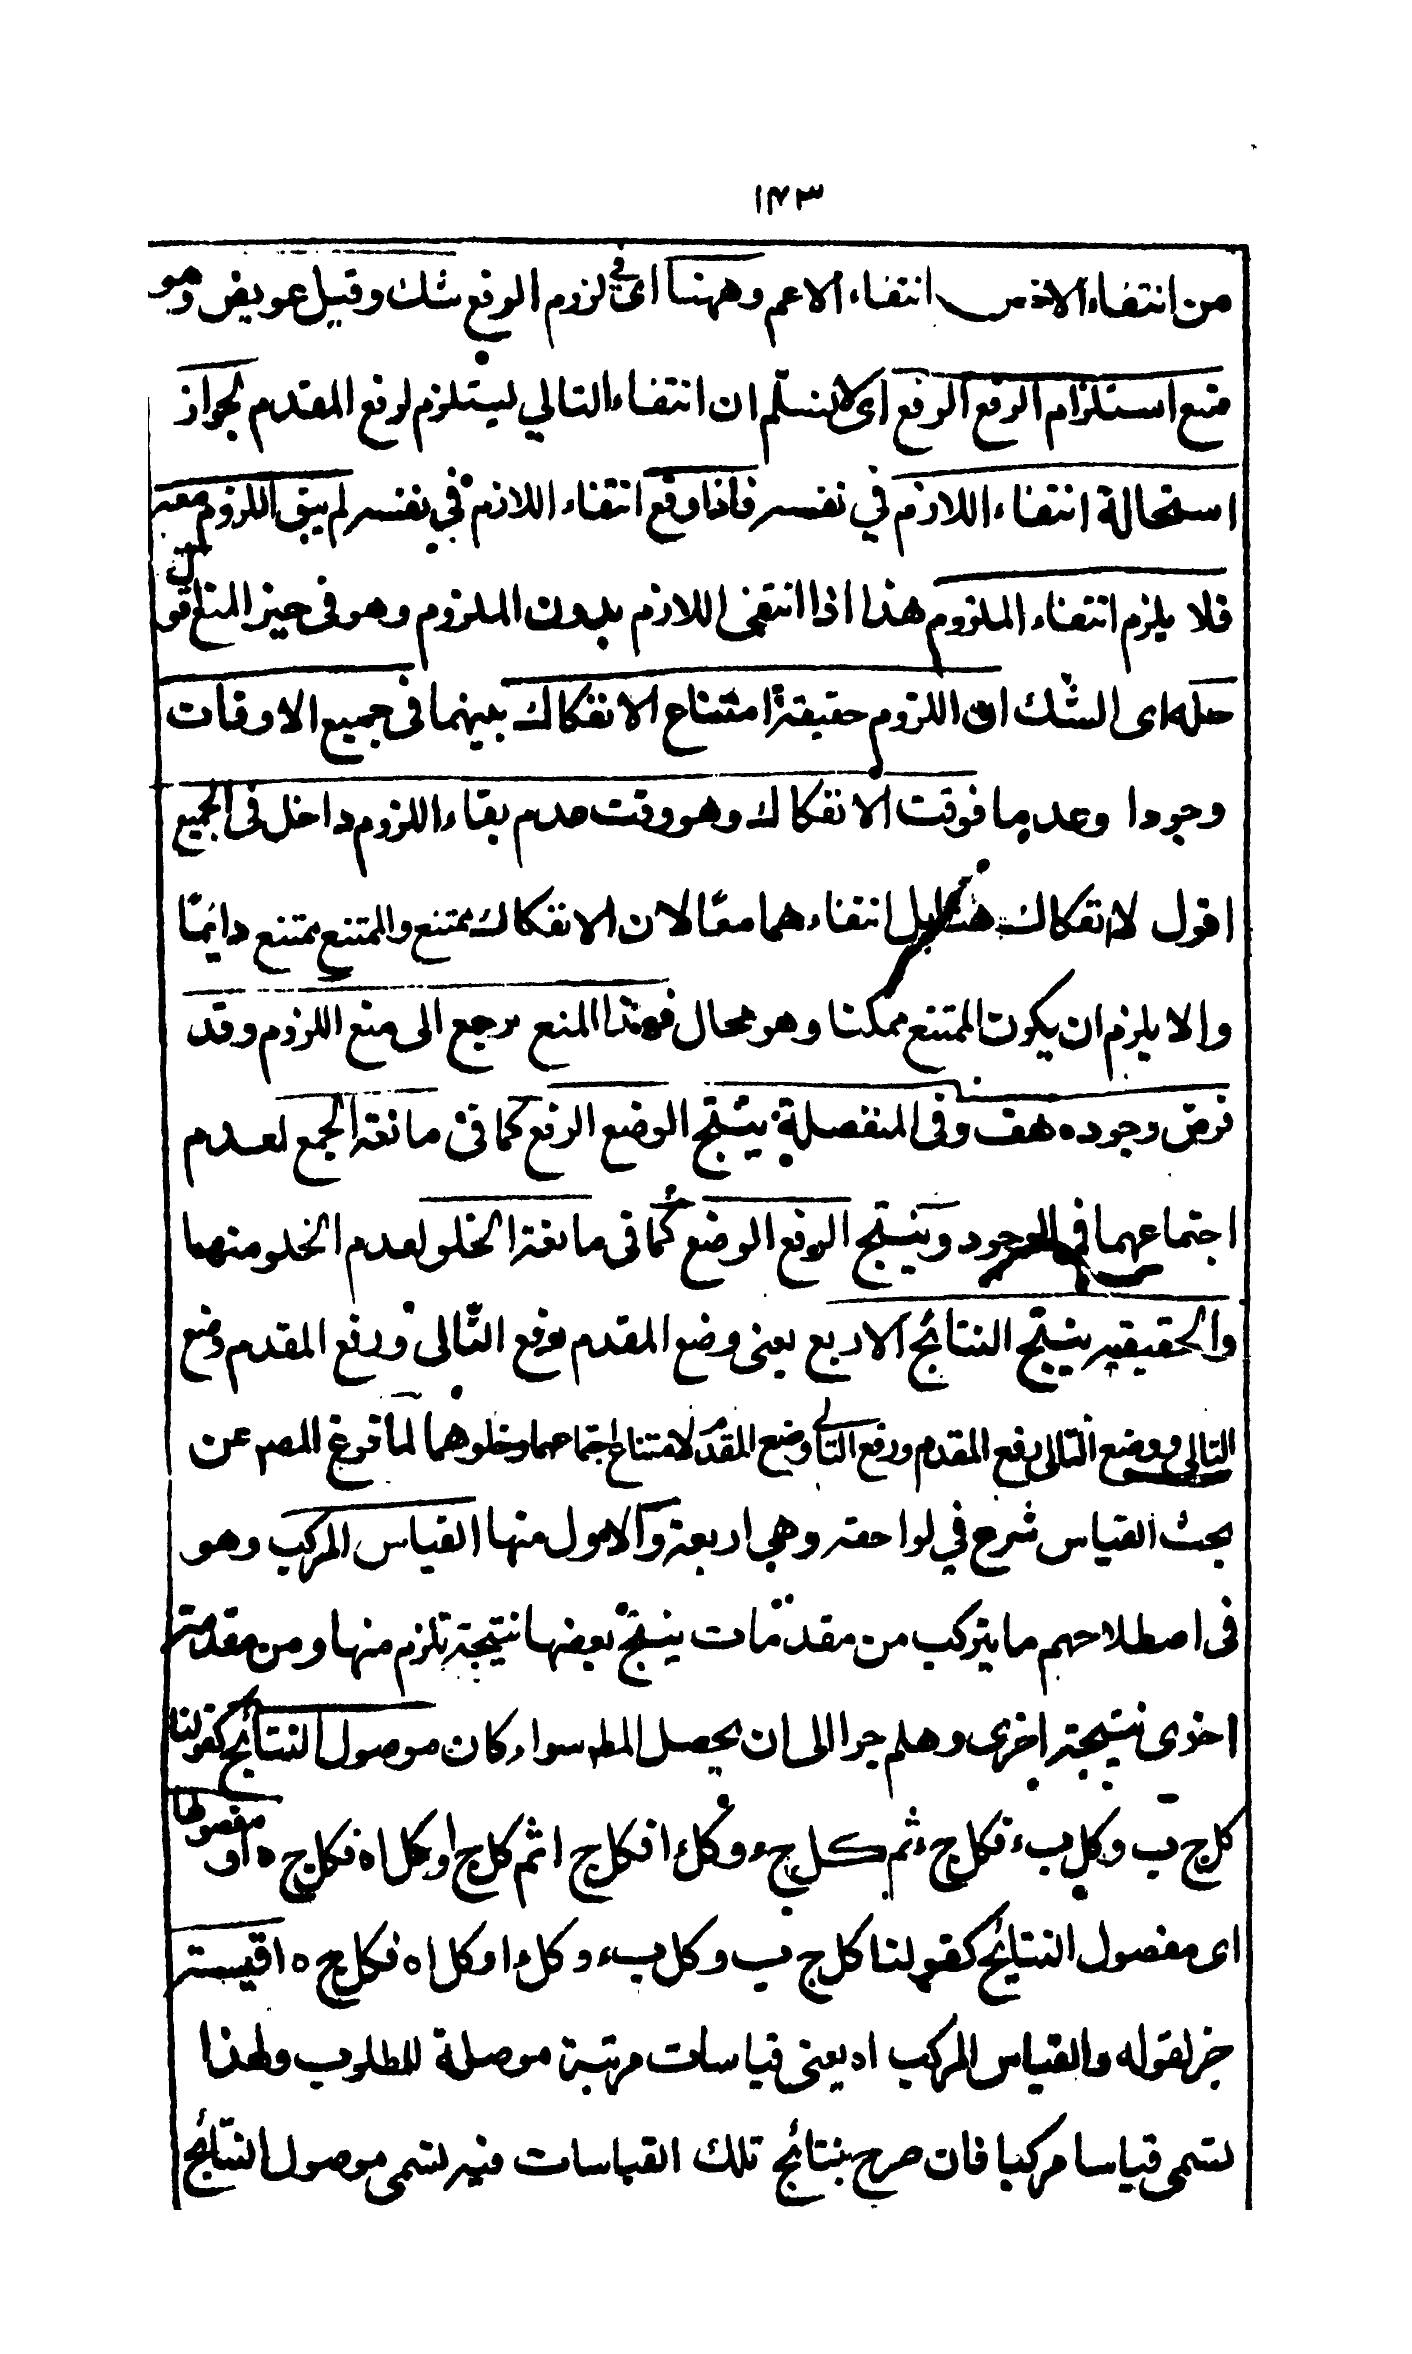 ١٤٣
من انتفاء الاخص انتفاء الاعم وههنا اى في لزوم الرفع شك وقيل عويض وهو
منع استلزام الرفع الرفع اى لا نسلم ان انتفاء التالي ليستلزم لرفع المقدم لجواز
استحالة انتفاء اللازم في نفسه فاذا وقع انتفاء اللازم في نفسه لم يبق اللزوم معه
فلا يلزم انتفاء الملزوم هذا اذا انتفى اللازم بدون الملزوم وهو في حيز المنع اقول
حله اى الشك ان اللزوم حقيقة امتناع الانفكاك بينهما في جميع الاوقات
وجودا وعدما فوقت الانفكاك وهو وقت عدم بقاء اللزوم داخل في الجميع
اقول لا انفكاك هنا بل انتفاءهما معا لان الانفكاك ممتنع والممتنع ممتنع دائما
والا يلزم ان يكون الممتنع ممكنا وهو محال فهذا المنع يرجع الى منع اللزوم وقد
فرض وجوده هف وفي المنفصلة ينتج الوضع الرفع كما في مانعة الجمع لعدم
اجتماعهما في الوجود وينتج الرفع الوضع كما في مانعة الخلو لعدم الخلو منهما
والحقيقية ينتج النتائج الاربع يعنى وضع المقدم رفع التالى ورفع المقدم وضع
التالى ووضع التالى رفع المقدم ورفع التالى وضع المقدم لامتناع اجتماعهما وخلوهما لما فرغ المصه عن
بحث القياس شرع في لواحقه وهي اربعة والاول منها القياس المركب وهو
فى اصطلاحهم ما يتركب من مقدمات ينتج بعضها نتيجة يلزم منها ومن مقدمة
اخرى نتيجة اخرى وهلم جرا الى ان يحصل المط سواء كان موصول النتائج كقولنا
كل ج ب وكل ب ء فكل ج ء ثم كل ج ء وكل ء ا فكل ج ا ثم كل ج ا وكل ا ه فكل ج ه او مفصولها
اى مفصول النتايج كقولنا كل ج ب وكل ب ء وكل ء ا وكل ا ه فكل ج ه اقيسة
خبر لقوله والقياس المركب اه يعنى قياسات مرتبة موصلة للمطلوب ولهذا
يسمى قياسا مركبا فان صرح بنتائج تلك القياسات فيه يسمى موصول النتائج